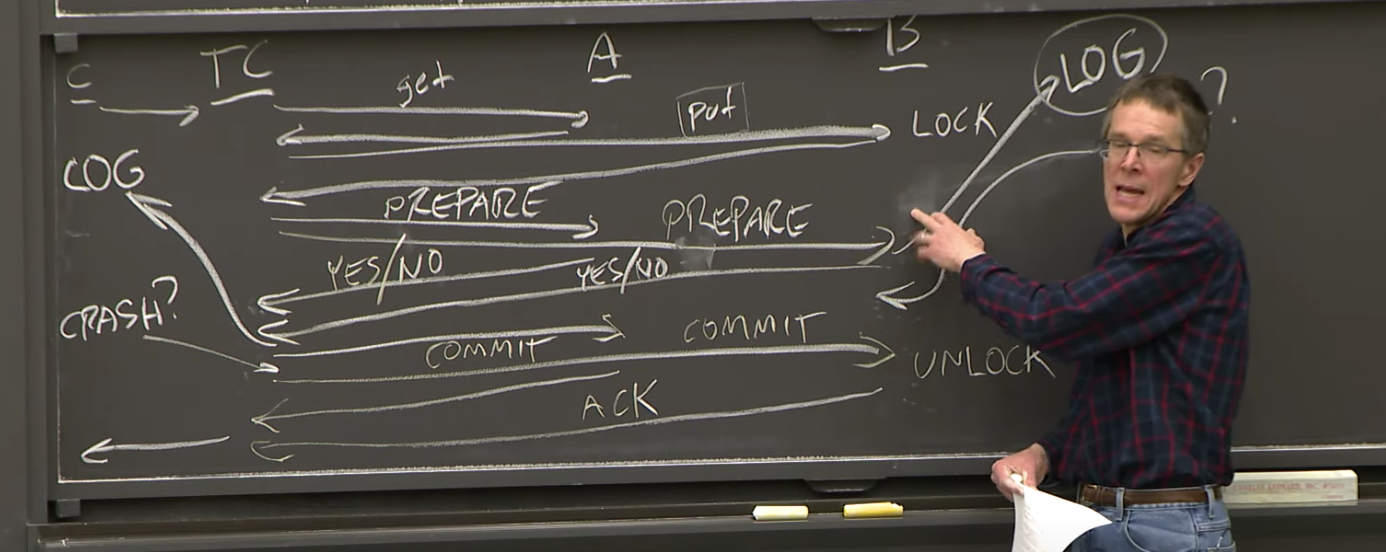 C TC get A B LOG ?
put LOCK
LOG
PREPARE PREPARE
YES/NO YES/NO
CRASH?
COMMIT COMMIT
UNLOCK
ACK